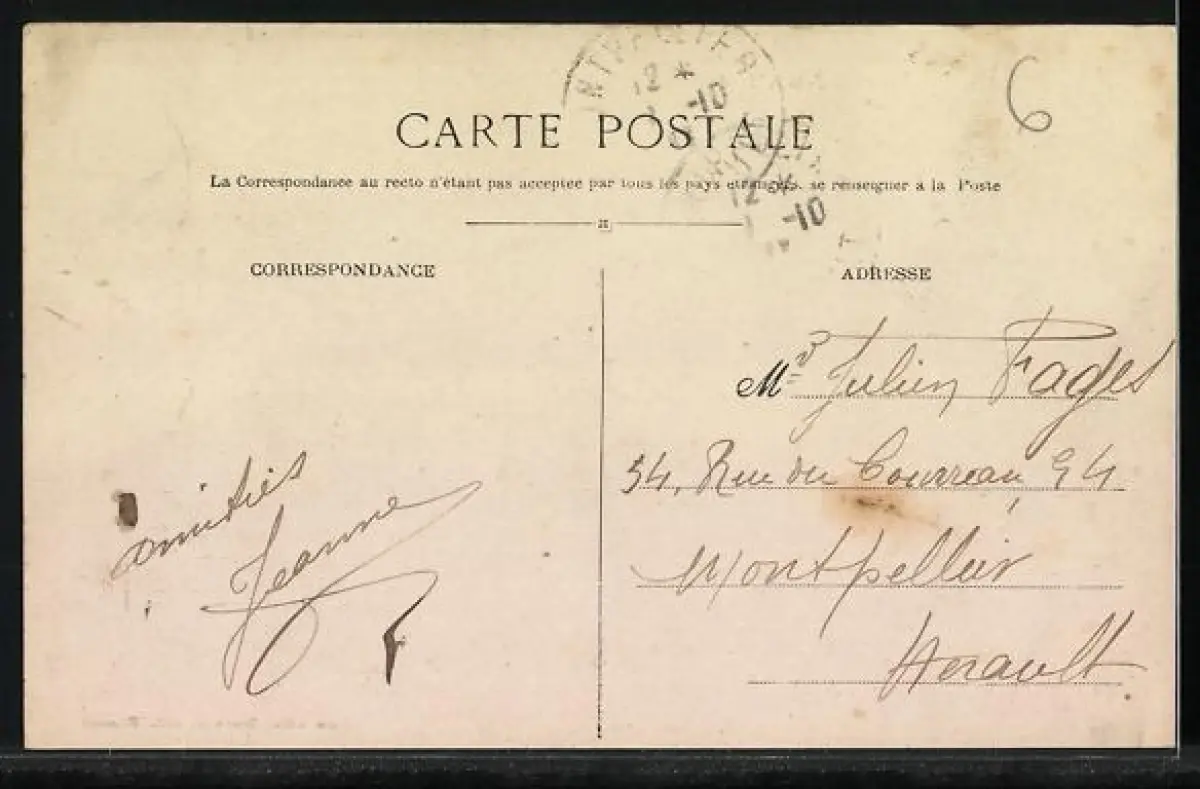 12 *
-10
6
CARTE POSTALE
La Correspondance au recto n'étant pas acceptée par tous les pays étrangers, se renseigner à la Poste
12 *
1 -10
CORRESPONDANCE
ADRESSE
Mr Julien Fages
54, Rue du Courreau, 54
Montpellier
Hérault
amitiés
Jeanne